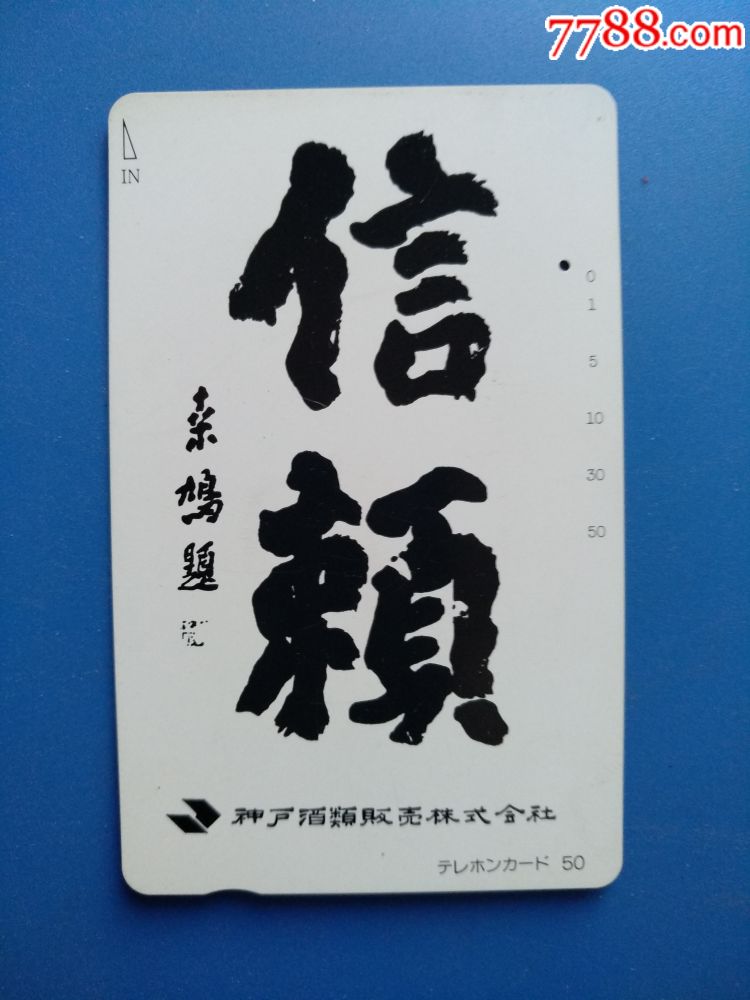 7788.com
IN
信
頼
菜鳩題
0
1
5
10
30
50
神戸酒類販売株式会社
テレホンカード 50